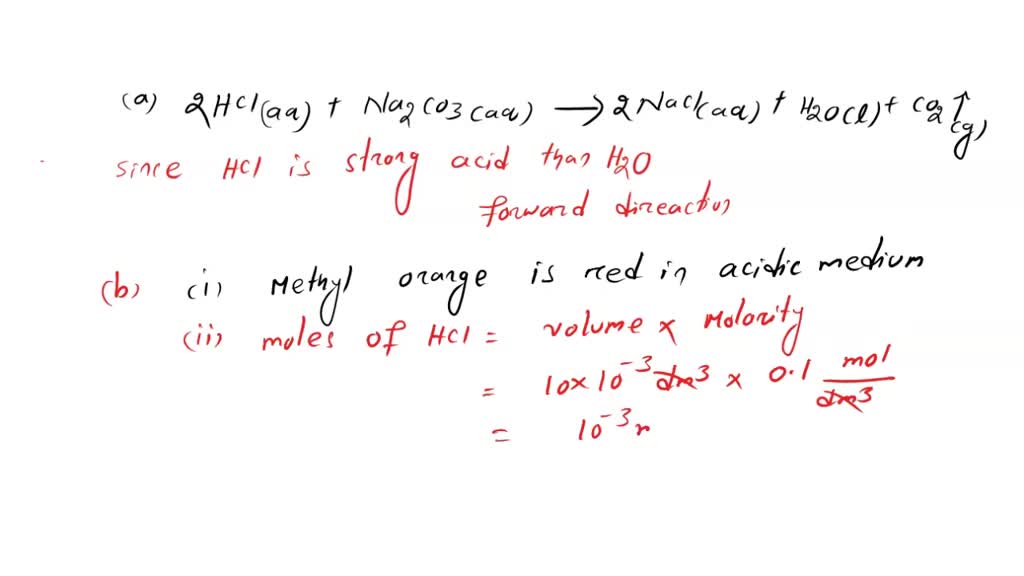 (a) 2HCl(aq) + Na2CO3(aq) → 2NaCl(aq) + H2O(l) + CO2↑(g)
since HCl is strong acid than H2O
forward direaction
(b) (i) Methyl orange is red in acidic medium
(ii) moles of HCl = volume × Molarity
= 10×10⁻³ dm³ × 0.1 mol/dm³
= 10⁻³ m